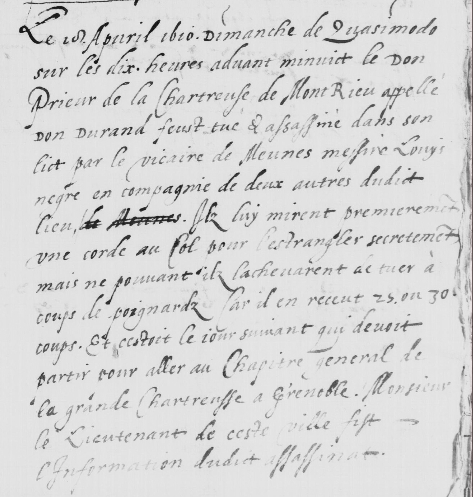 Le 18 Apvril 1610. Dimanche de Quasimodo
sur les dix. heures advant minuict le Don
Prieur de la Chartreuse de MontRieu appellé
Don Durand feust tué & assassiné dans son
lict par le vicaire de Meunes messire Louys
negre en compagnie de deux autres dudict
lieu de Meunes. Ilz luy mirent premierement
une corde au col pour l'estrangler secretement
mais ne pouvant ilz lachevarent de tuer à
coups de poignardz Car il en receut 25. ou 30
coups. Et cestoit le iour suivant qui devoit
partir pour aller au Chapitre general de
la grande Chartreusse a Grenoble. Monsieur
le Lieutenant de ceste ville fist
l'Information dudict assassinat.